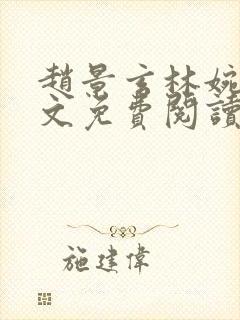 趙景言林婉
文免費閱讀
施建偉